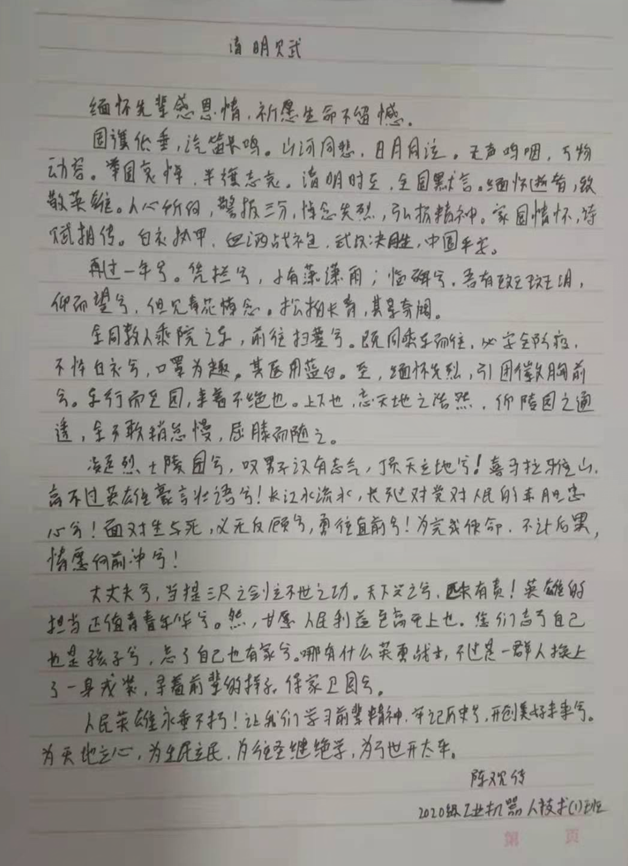 清明欠武
缅怀先辈感恩情，祈愿生命不留憾。
国旗低垂，汽笛长鸣。山河同悲，日月同泣。无声呜咽，万物
动容。举国哀悼，半旗志哀。清明时至，全国默言。缅怀逝者，致
敬英雄。人心所向，警报三分，悼念先烈，弘扬精神。家国情怀，
相传。白衣执甲，血洒战袍，决胜，中国平安。
再过一年兮。凭栏兮，才有潇潇雨；临碑兮，吾有斑斑泪，
仰而望兮，但见寿花悼念。松柏长青，甚是奇阔。
全同数人乘院之车，前往扫墓兮。既同乘车而往，必安全防疫，
不惮白衣兮，口罩为趣。其医用蓝白。至，缅怀先烈，引团徽致胸前
兮。车行而至园，车着不绝也。上下也，志天地之浩然，仰陵园之通
透，全不敢稍怠慢，屈膝而随之。
凌近烈士陵园兮，叹男不汉有志气，顶天立地兮！喜马拉雅山，
高不过英雄豪言壮语兮！长江水流水，长不过对党对人民的丰胆忠
心兮！面对生与死，义无反顾兮，勇往直前兮！为完成使命，不计后果，
情愿向前冲兮！
大丈夫兮，当提三尺之剑立不世之功。天下兴亡兮，匹夫有责！英雄的
担当正值青春年华兮。然，甘愿人民利益至高无上也。您们忘了自己
也是孩子兮，忘了自己也有家兮。哪有什么英勇战士，不过是一群人换上
了一身戎装，学着前辈的样子，保家卫国兮。
人民英雄永垂不朽！让我们学习前辈精神，牢记历史兮，开创美好未来兮。
为天地立心，为生民立民，为往圣继绝学，为万世开太平。
陈欢传
2020级工业机器人技术(1)班
第 頁